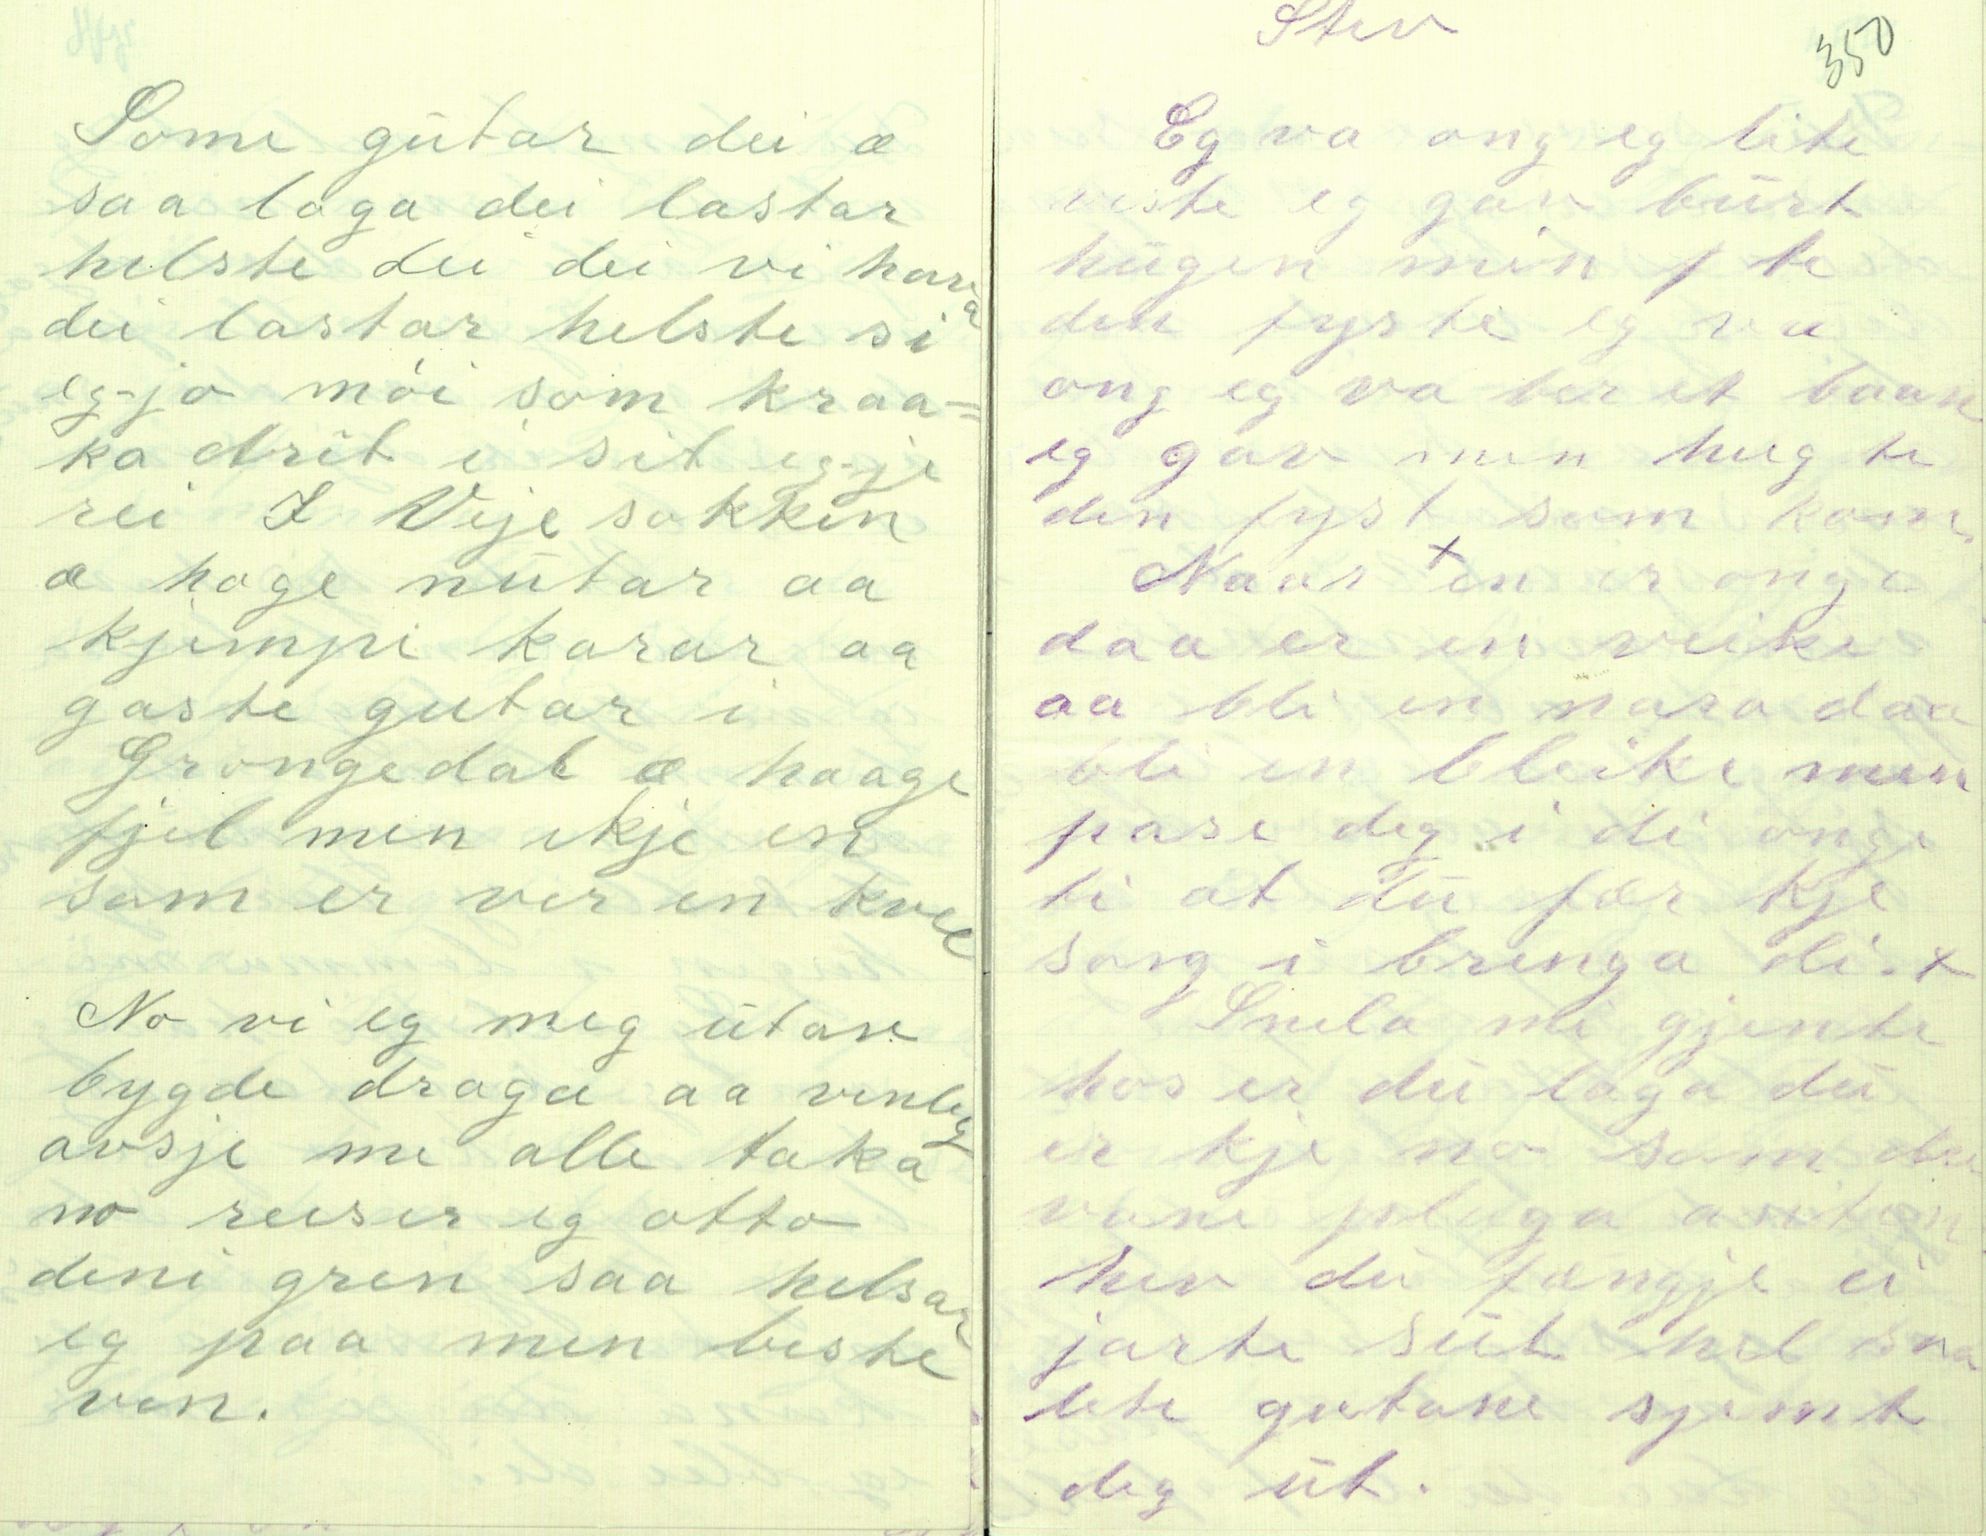 Some gūtar dei æ
saa laga dei lastar
helste dei dei vi hava
dei lastar helste si
eg-jo mói som kraa=
ka drit i sit eg-je
rei I Vije sokken
æ hage nūtar aa
kjempe karar aa
gaste gutar i
Grongedal æ haage
fjel men ikje en
som er ver en kvel
No vi eg meg ūtan
bygde draga aa venleg
avsje me alle taka
no reiser eg otta
deni gren saa helsar
eg paa men beste
ven.
Stev
350
Eg va ong eg lite
viste eg gav būrt
hūgen min f te
den fyste eg va
ong eg va ber et baan
eg gav men hug te
den fyst som kom.
Naar + en er onge
daa er en veike
aa bli en nara daa
bli en bleike men
pase deg i di onge
ti at dū fær kje
sorg i brenga di. +
Snela mi gjente
hos er dū laga dū
er kje no som du
vane plaga
hev dū fængje ei
jarte sūt hel sna
lete gutane sjemt
deg ūt.